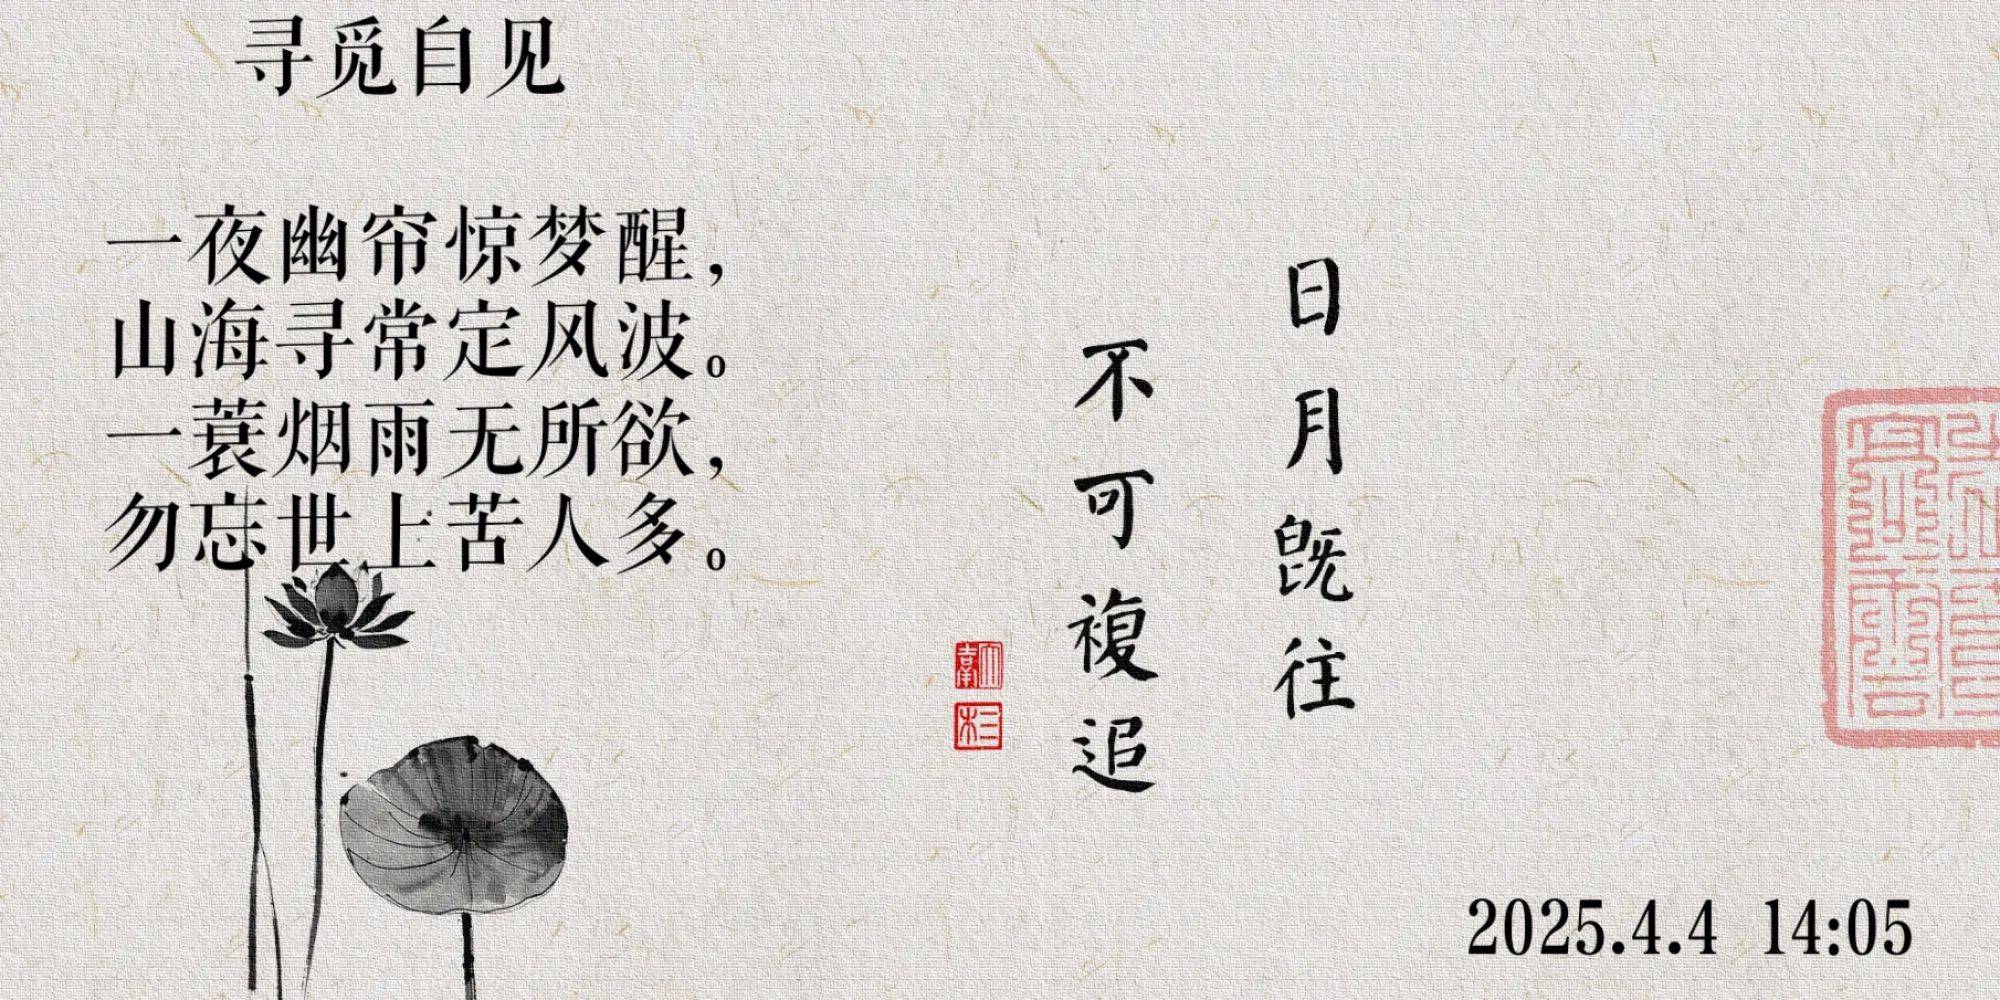 寻觅自见
一夜幽帘惊梦醒，
山海寻常定风波。
一蓑烟雨无所欲，
勿忘世上苦人多。
日月既往
不可複追
2025.4.4 14:05